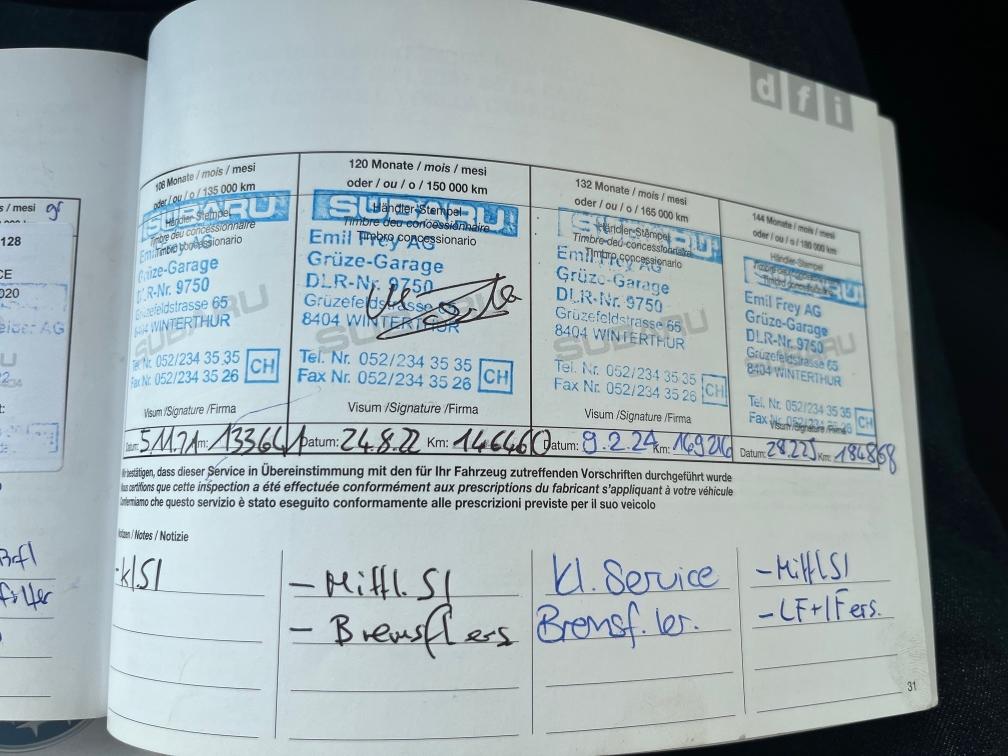 d f i
s / mesi gr
128
CE
020
AG
108 Monate / mois / mesi
oder / ou / o / 135 000 km
SUBARU
Händler-Stempel
Timbre deu concessionnaire
Timbro concessionario
Emil Frey AG
Grüze-Garage
DLR-Nr. 9750
Grüzefeldstrasse 65
8404 WINTERTHUR
SUBARU
Tel. Nr. 052/234 35 35
Fax Nr. 052/234 35 26
CH
Visum /Signature /Firma
Datum: 5.11.21 Km: 133641
120 Monate / mois / mesi
oder / ou / o / 150 000 km
SUBARU
Händler-Stempel
Timbre deu concessionnaire
Timbro concessionario
Emil Frey AG
Grüze-Garage
DLR-Nr. 9750
Grüzefeldstrasse 65
8404 WINTERTHUR
SUBARU
Tel. Nr. 052/234 35 35
Fax Nr. 052/234 35 26
CH
Visum /Signature /Firma
Datum: 24.8.22 Km: 146460
132 Monate / mois / mesi
oder / ou / o / 165 000 km
SUBARU
Händler-Stempel
Timbre deu concessionnaire
Timbro concessionario
Emil Frey AG
Grüze-Garage
DLR-Nr. 9750
Grüzefeldstrasse 65
8404 WINTERTHUR
SUBARU
Tel. Nr. 052/234 35 35
Fax Nr. 052/234 35 26
CH
Visum /Signature /Firma
Datum: 9.2.24 Km: 169216
144 Monate / mois / mesi
oder / ou / o / 180 000 km
Händler-Stempel
Timbre deu concessionnaire
Timbro concessionario
Emil Frey AG
Grüze-Garage
DLR-Nr. 9750
Grüzefeldstrasse 65
8404 WINTERTHUR
Tel. Nr. 052/234 35 35
Fax Nr. 052/234 35 26
CH
Visum /Signature /Firma
Datum: 28.2.25 Km: 184868
Wir bestätigen, dass dieser Service in Übereinstimmung mit den für Ihr Fahrzeug zutreffenden Vorschriften durchgeführt wurde
Nous certifions que cette inspection a été effectuée conformément aux prescriptions du fabricant s'appliquant à votre véhicule
Confermiamo che questo servizio è stato eseguito conformamente alle prescrizioni previste per il suo veicolo
Notizen / Notes / Notizie
- kl SI
- Mittl. SI
- Bremsfl ers
Kl. Service
Bremsf. er.
- Mittl SI
- LF+IF ers.
31